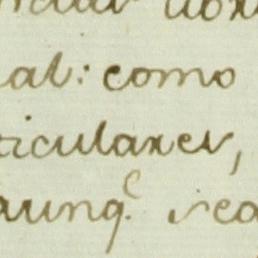 al: como
ticulares,
aunq.e sea